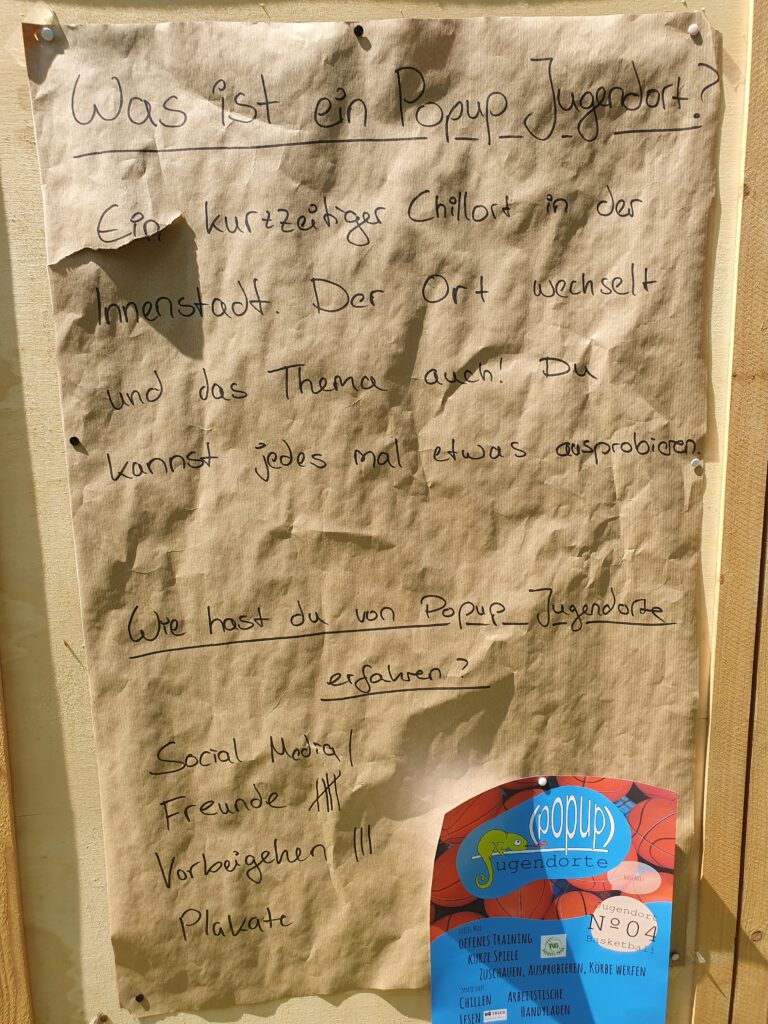 Was ist ein Popup Jugendort?
Ein kurtzzeitiger Chillort in der
Innenstadt. Der Ort wechselt
und das Thema auch! Du
kannst jedes mal etwas ausprobieren.
Wie hast du von Popup Jugendorte
erfahren?
Social Media |
Freunde ||||
Vorbeigehen |||
Plakate
(popup)
Jugendorte
Jugendort
Nº04
Basketball
offenes Training
kurze Spiele
zuschauen, ausprobieren, Körbe werfen
Chillen Arbeitstische
Lesen Handyladen